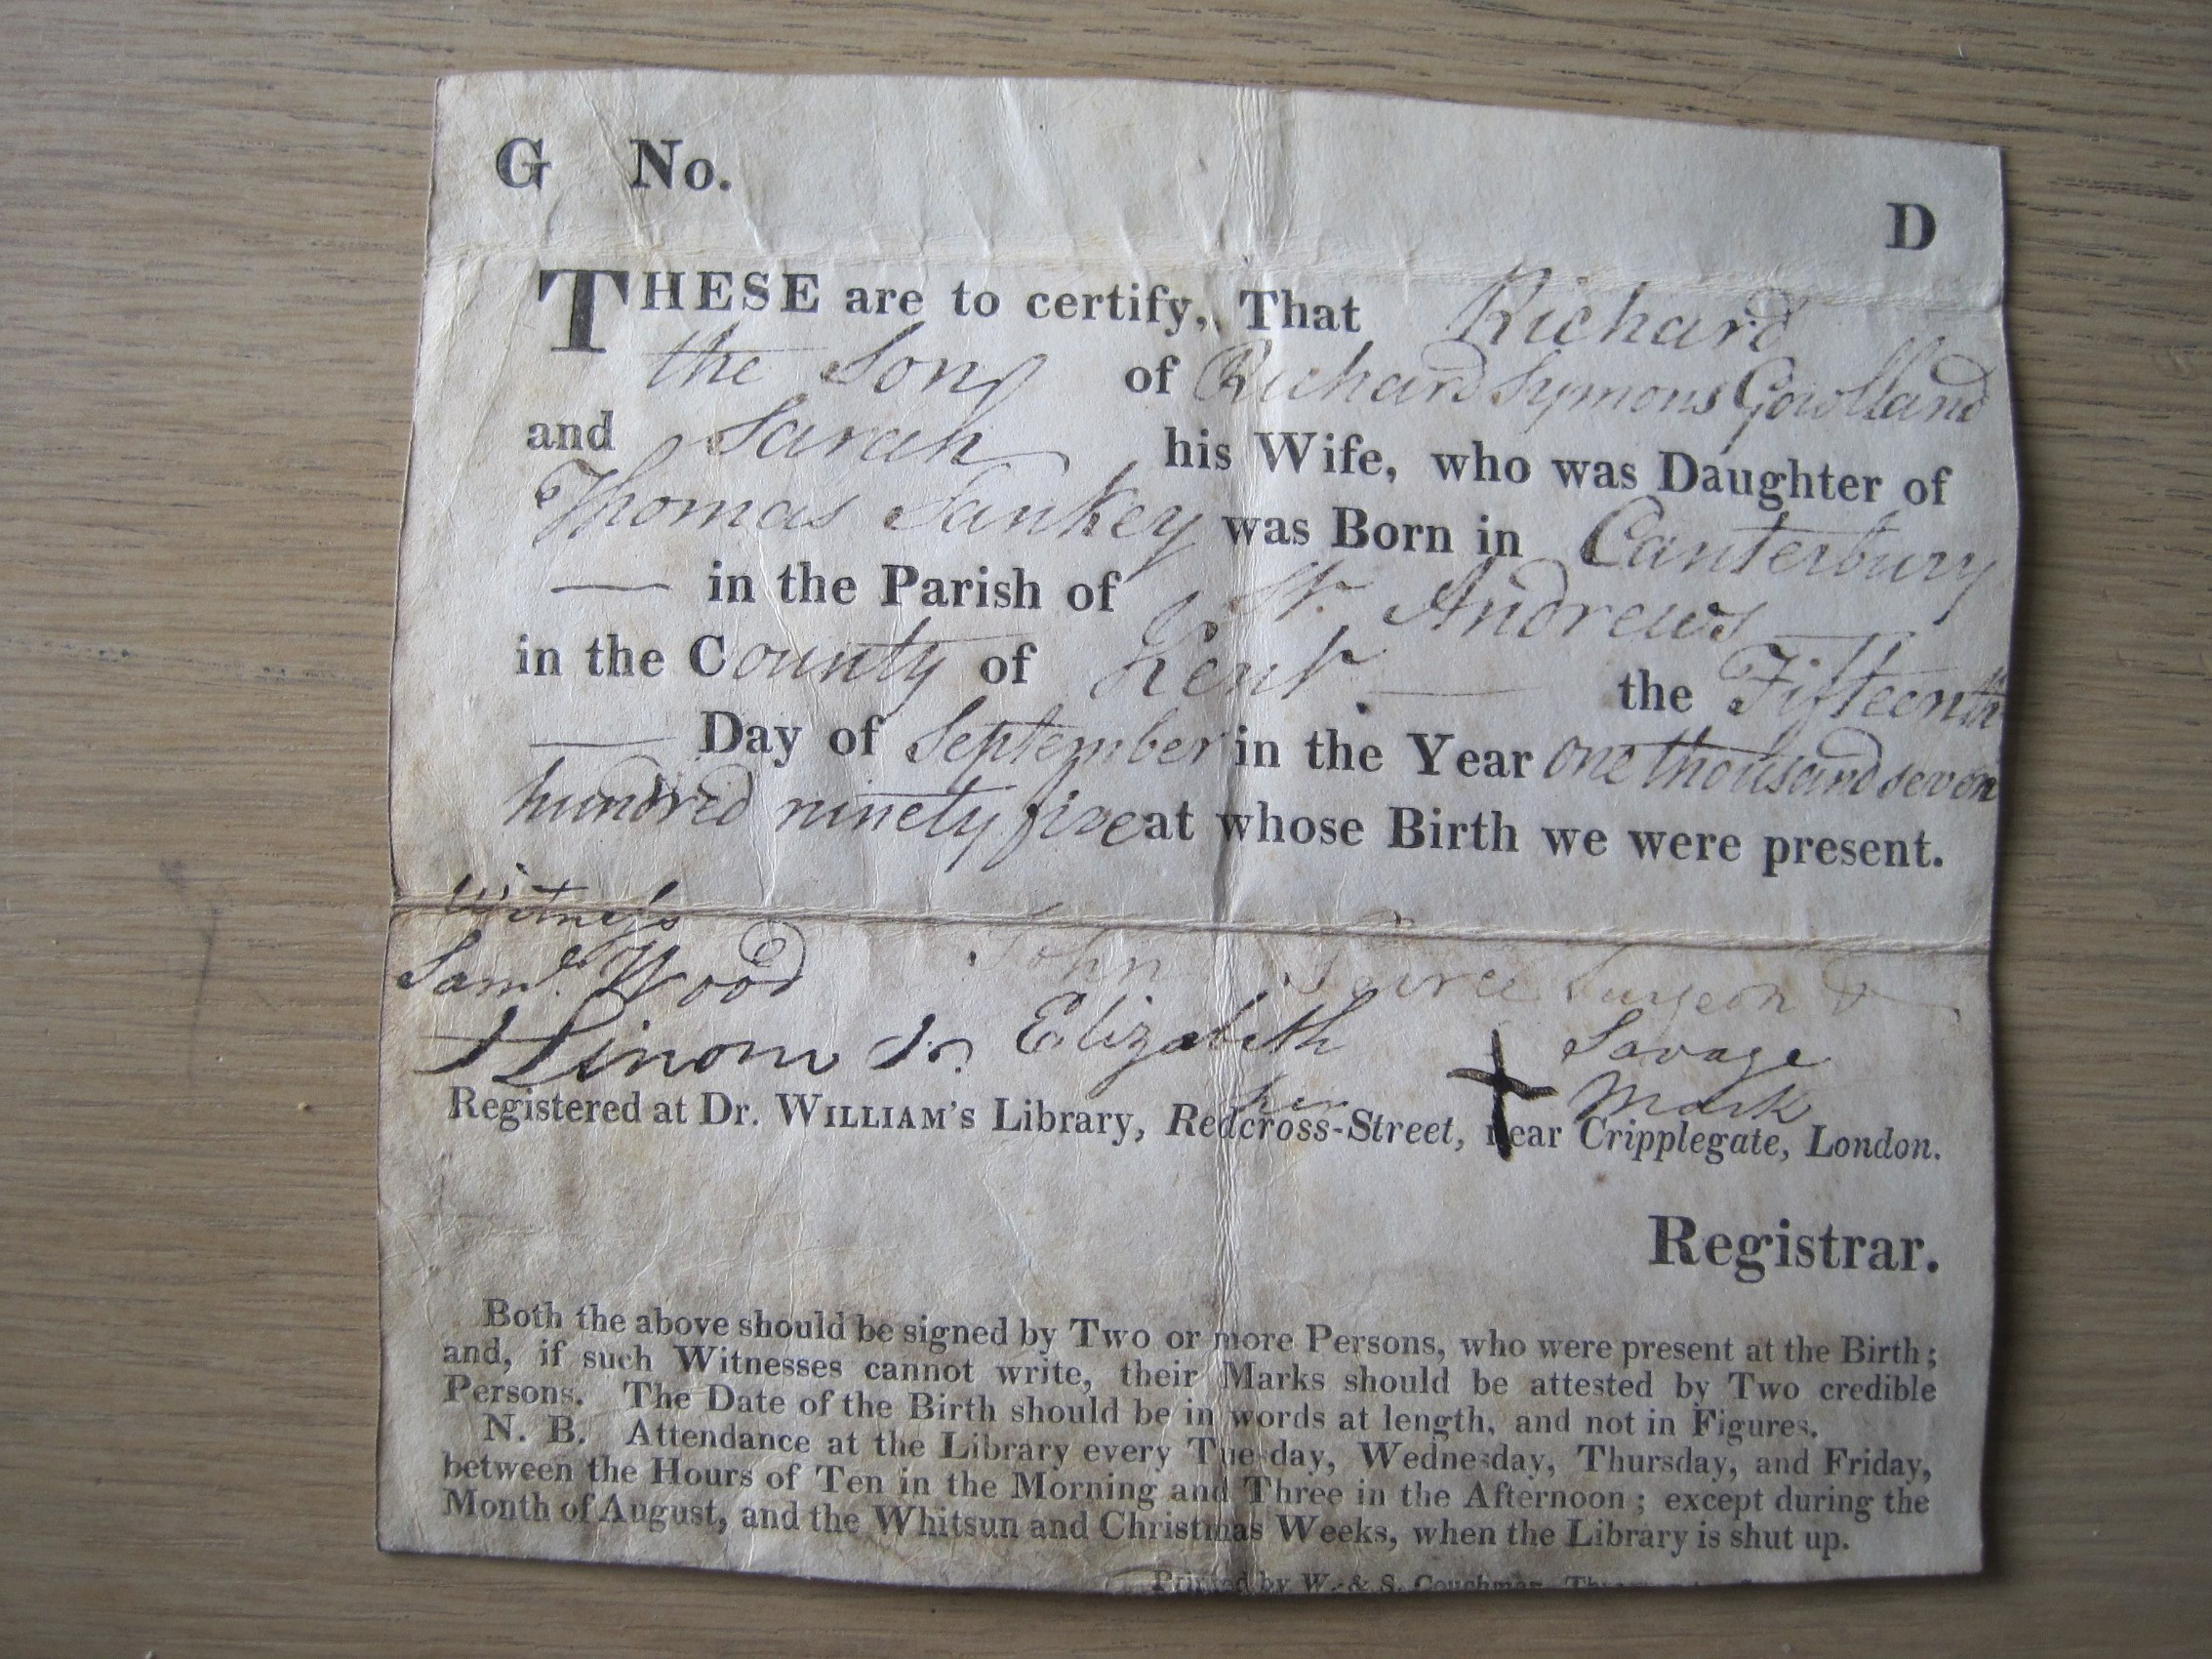 G No.
D
THESE are to certify, That Richard
the Son of Richard Symons Gowlland
and Sarah his Wife, who was Daughter of
Thomas Sankey was Born in Canterbury
— in the Parish of St. Andrews
in the County of Kent — the Fifteenth
— Day of September in the Year one thousand seven
hundred ninety five at whose Birth we were present.
Witness
Saml. Wood John Surgeon &
Elizabeth Savage
her Mark
Registered at Dr. WILLIAM'S Library, Redcross-Street, near Cripplegate, London.
Registrar.
Both the above should be signed by Two or more Persons, who were present at the Birth;
and, if such Witnesses cannot write, their Marks should be attested by Two credible
Persons. The Date of the Birth should be in words at length, and not in Figures.
N. B. Attendance at the Library every Tuesday, Wednesday, Thursday, and Friday,
between the Hours of Ten in the Morning and Three in the Afternoon; except during the
Month of August, and the Whitsun and Christmas Weeks, when the Library is shut up.
Printed by W. & S. Couchman,